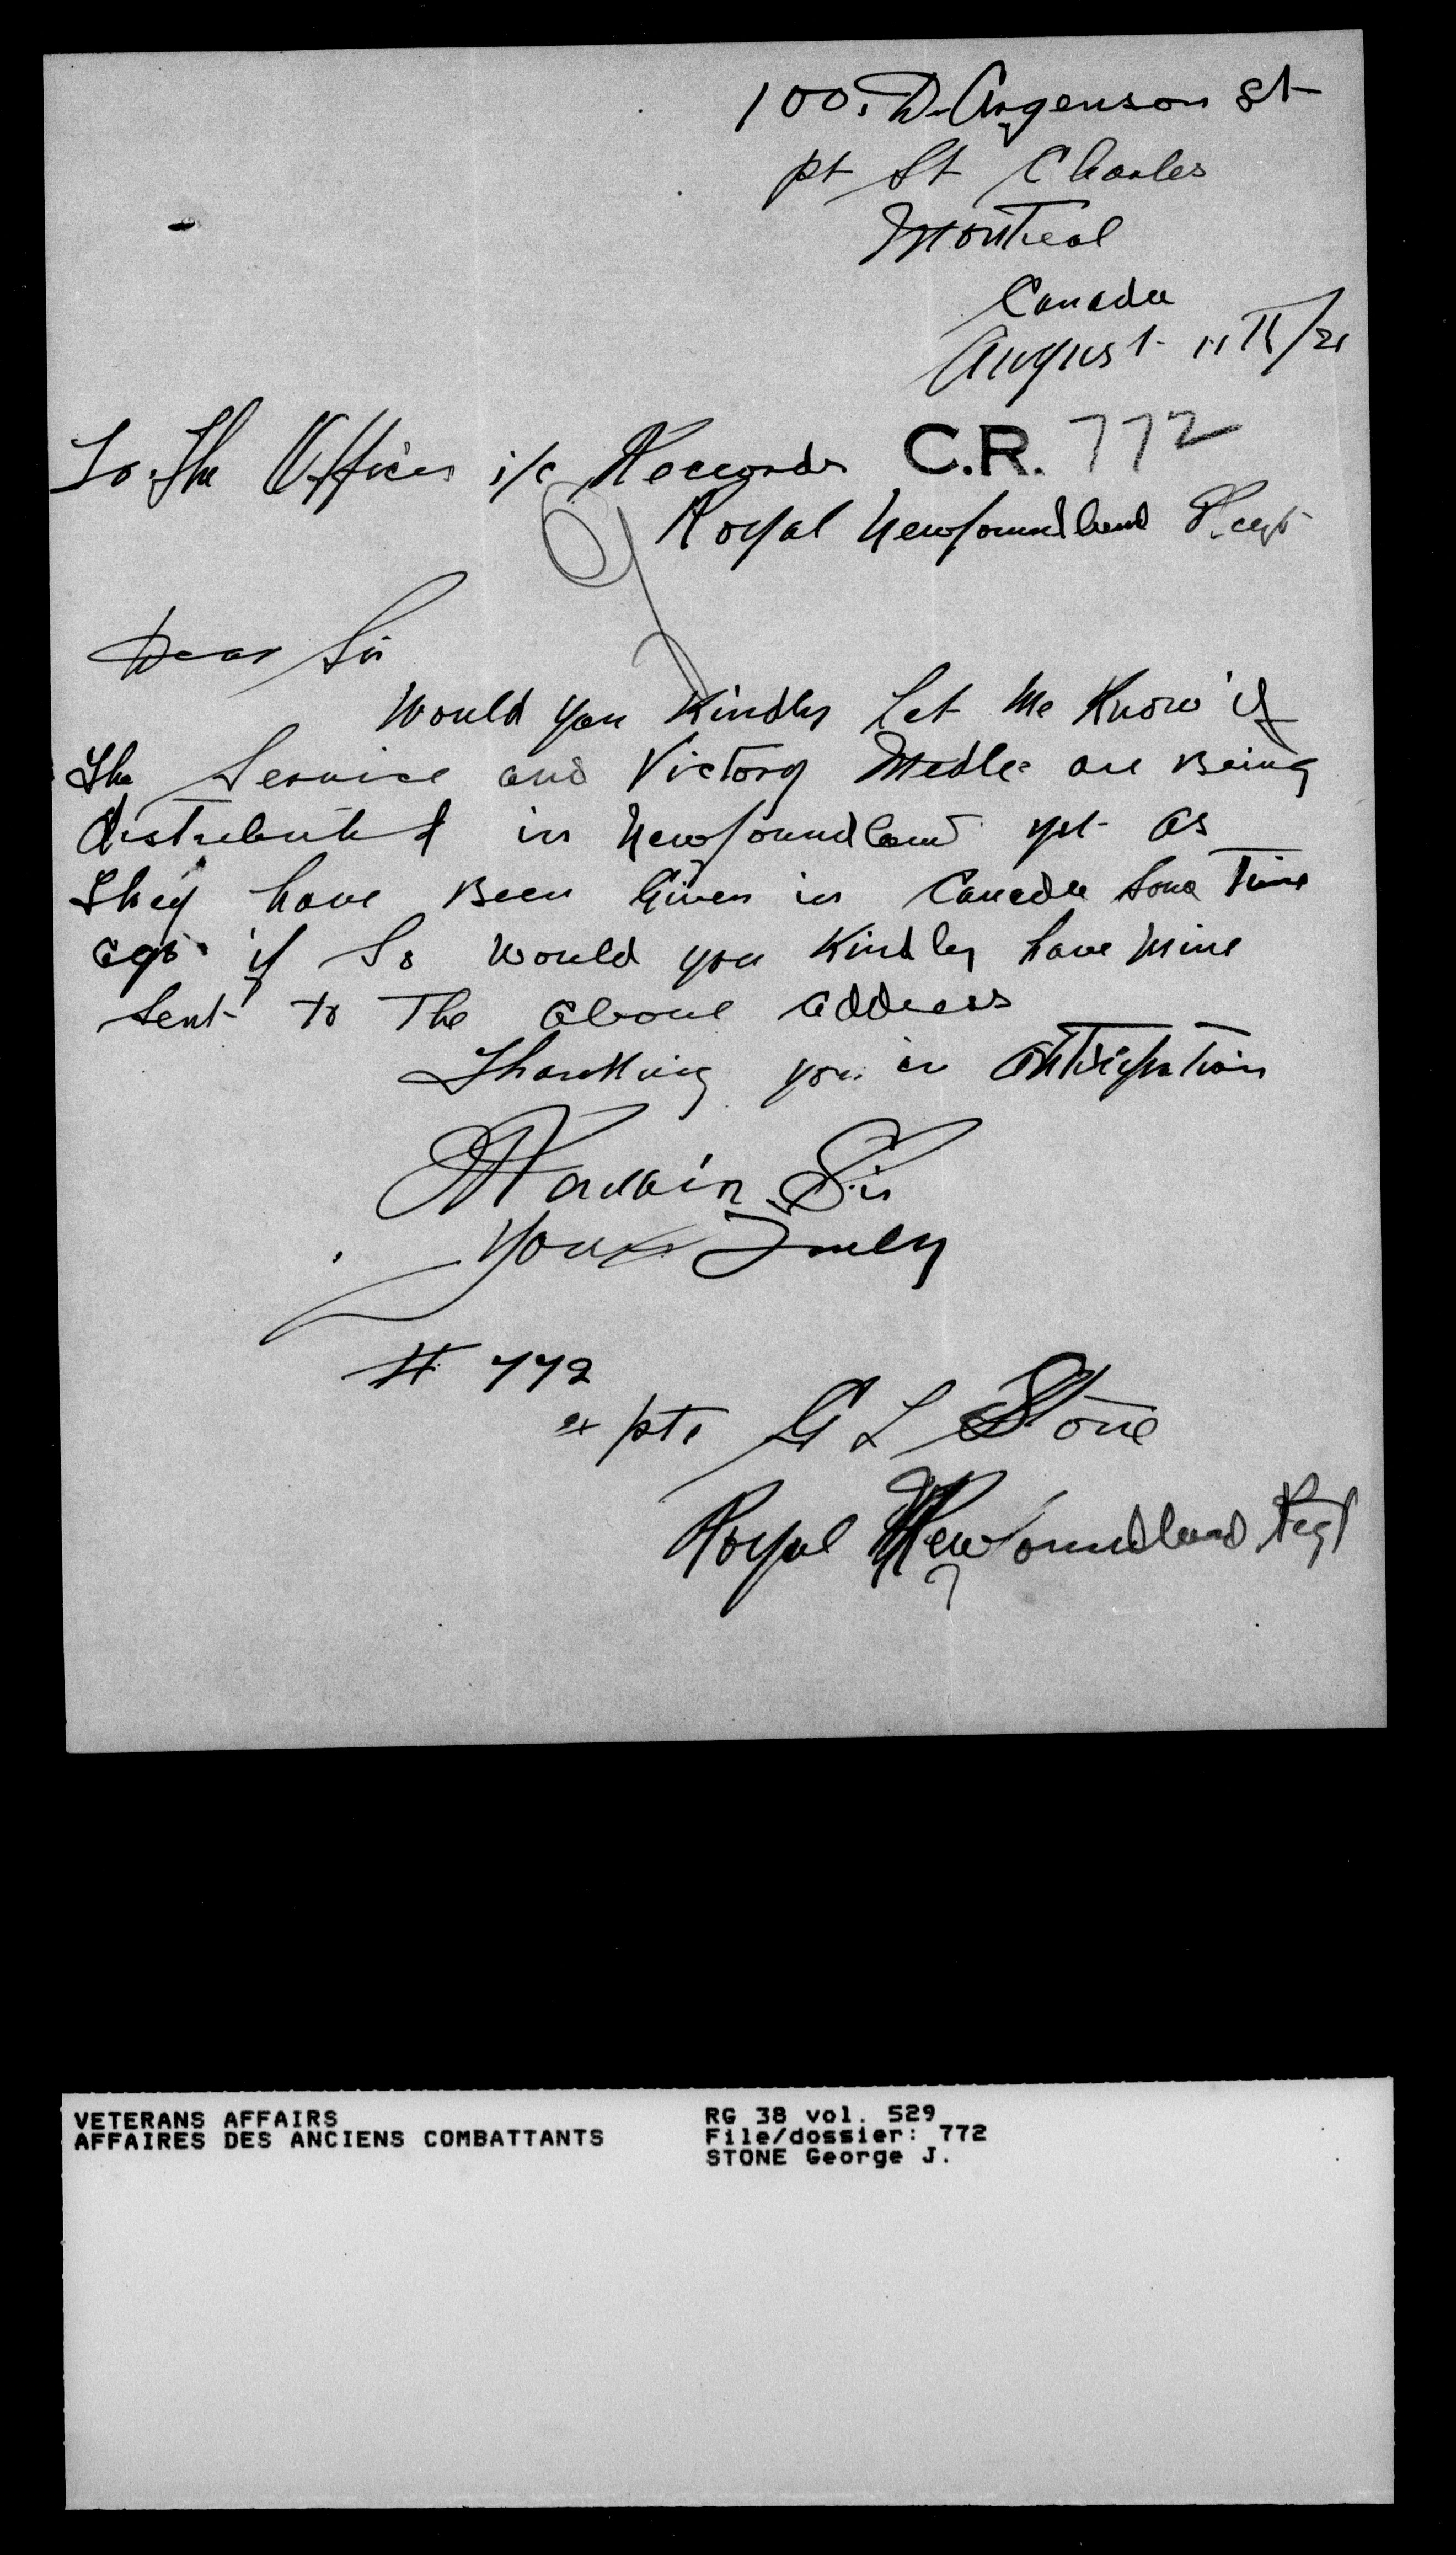 100, D'Argenson St
pt St Charles
Montreal
Canada
August 11th/21
To The Officer i/c Records C.R. 772
Royal Newfoundland Regt
Dear Sir
Would you Kindly Let Me Know if
The Service and Victory Medls are Being
distributed in Newfoundland yet as
They have Been Given in Canada Some Time
ago. if So Would you Kindly have Mine
Sent to The above address
Thanking you in Anticipation
I Remain Sir
Yours Truly
# 772
ex pte G L Stone
Royal Newfoundland Regt
VETERANS AFFAIRS
AFFAIRES DES ANCIENS COMBATTANTS
RG 38 vol. 529
File/dossier: 772
STONE George J.